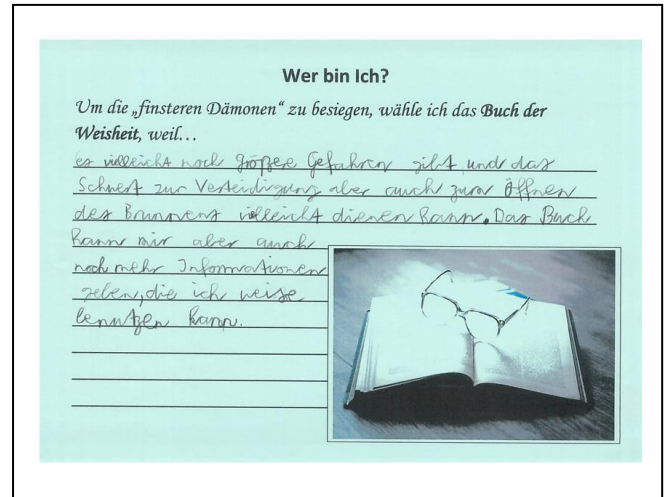 Wer bin Ich?
Um die „finsteren Dämonen“ zu besiegen, wähle ich das Buch der
Weisheit, weil…
es villeicht noch größere Gefahren gibt und das
Schwert zur Verteidigung aber auch zum Öffnen
des Brunnens villeicht dienen kann. Das Buch
kann mir aber auch
noch mehr Informationen
geben, die ich weise
benutzen kann.